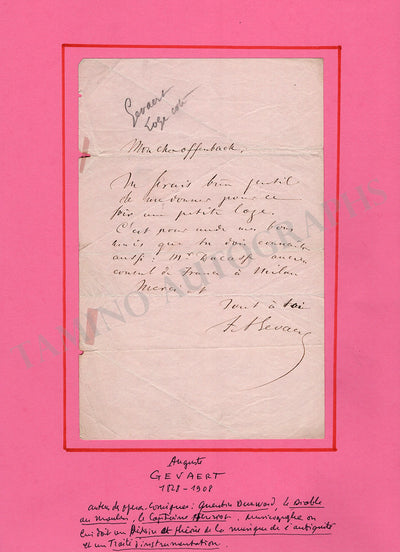 Gevaert
Loge
Mon cher offenback,
Tu serais bien gentil
de me donner pour ce
soir une petite loge.
C'est pour un de nos bons
amis que tu dois connaître
aussi: Mr Ducasse ancien
consul de France à Milan
Merci
Tout à toi
Gevaert
TAMINO AUTOGRAPHS
Auguste
GEVAERT
1828-1908
auteur de opera-comiques: Quentin Durward, le Diable
au moulin, le Capitaine Henriot. Musicographe on
lui doit un Histoire et théorie de la musique de l'antiquité
et un Traité d'instrumentation.